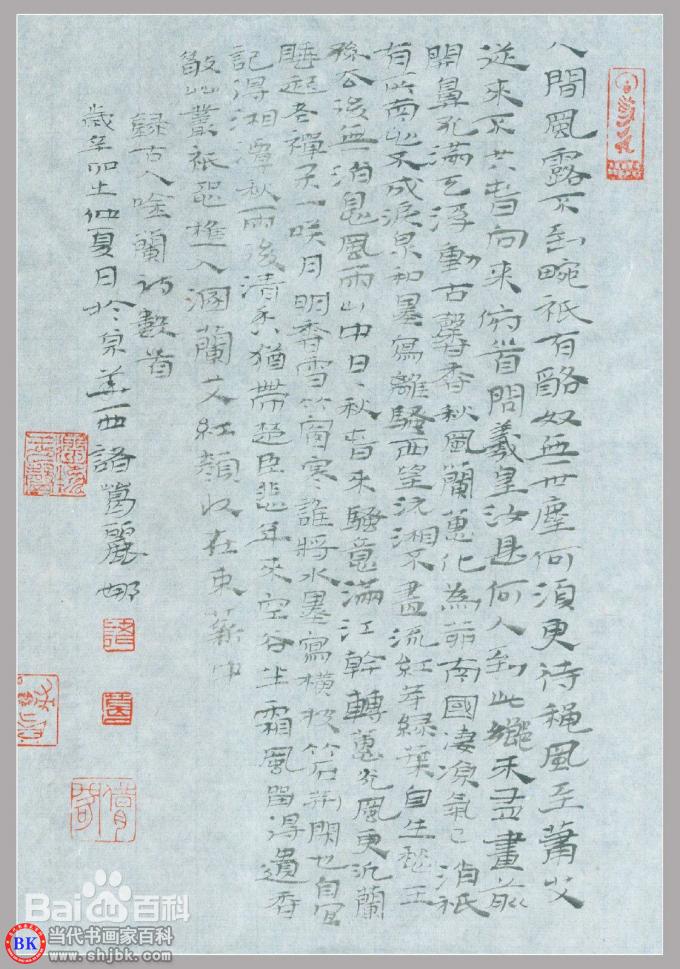 人間風露不到畹祇有酪奴無世塵何須更待穐風至蕭艾
從來不共春向來俯首問羲皇汝是何人到此鄉未畫畫前
開鼻孔滿天浮動古馨香秋風蘭蕙化為茆南國凄涼氣已消祇
有所南心不成淚泉和墨寫離騷西望沅湘不盡流紅芽綠葉自生愁王
孫去後無消息風雨山中日日秋春來騷意滿江幹轉蕙光風更汎蘭
睡起老禪呆一咲月明香雪竹窗寒誰將水墨寫橫披竹石荊閑也自宜
記得湘潭秋雨後清香猶帶楚臣悲年來空谷半霜風留得遺香
散此叢祇恐樵人溷蘭艾紅顏收在束薪中
錄古人唫蘭詩數首
歲辛卯土仙夏日於京華西諸葛麗娜
Baidu百科
BK
当代书画家百科
www.shjbk.com